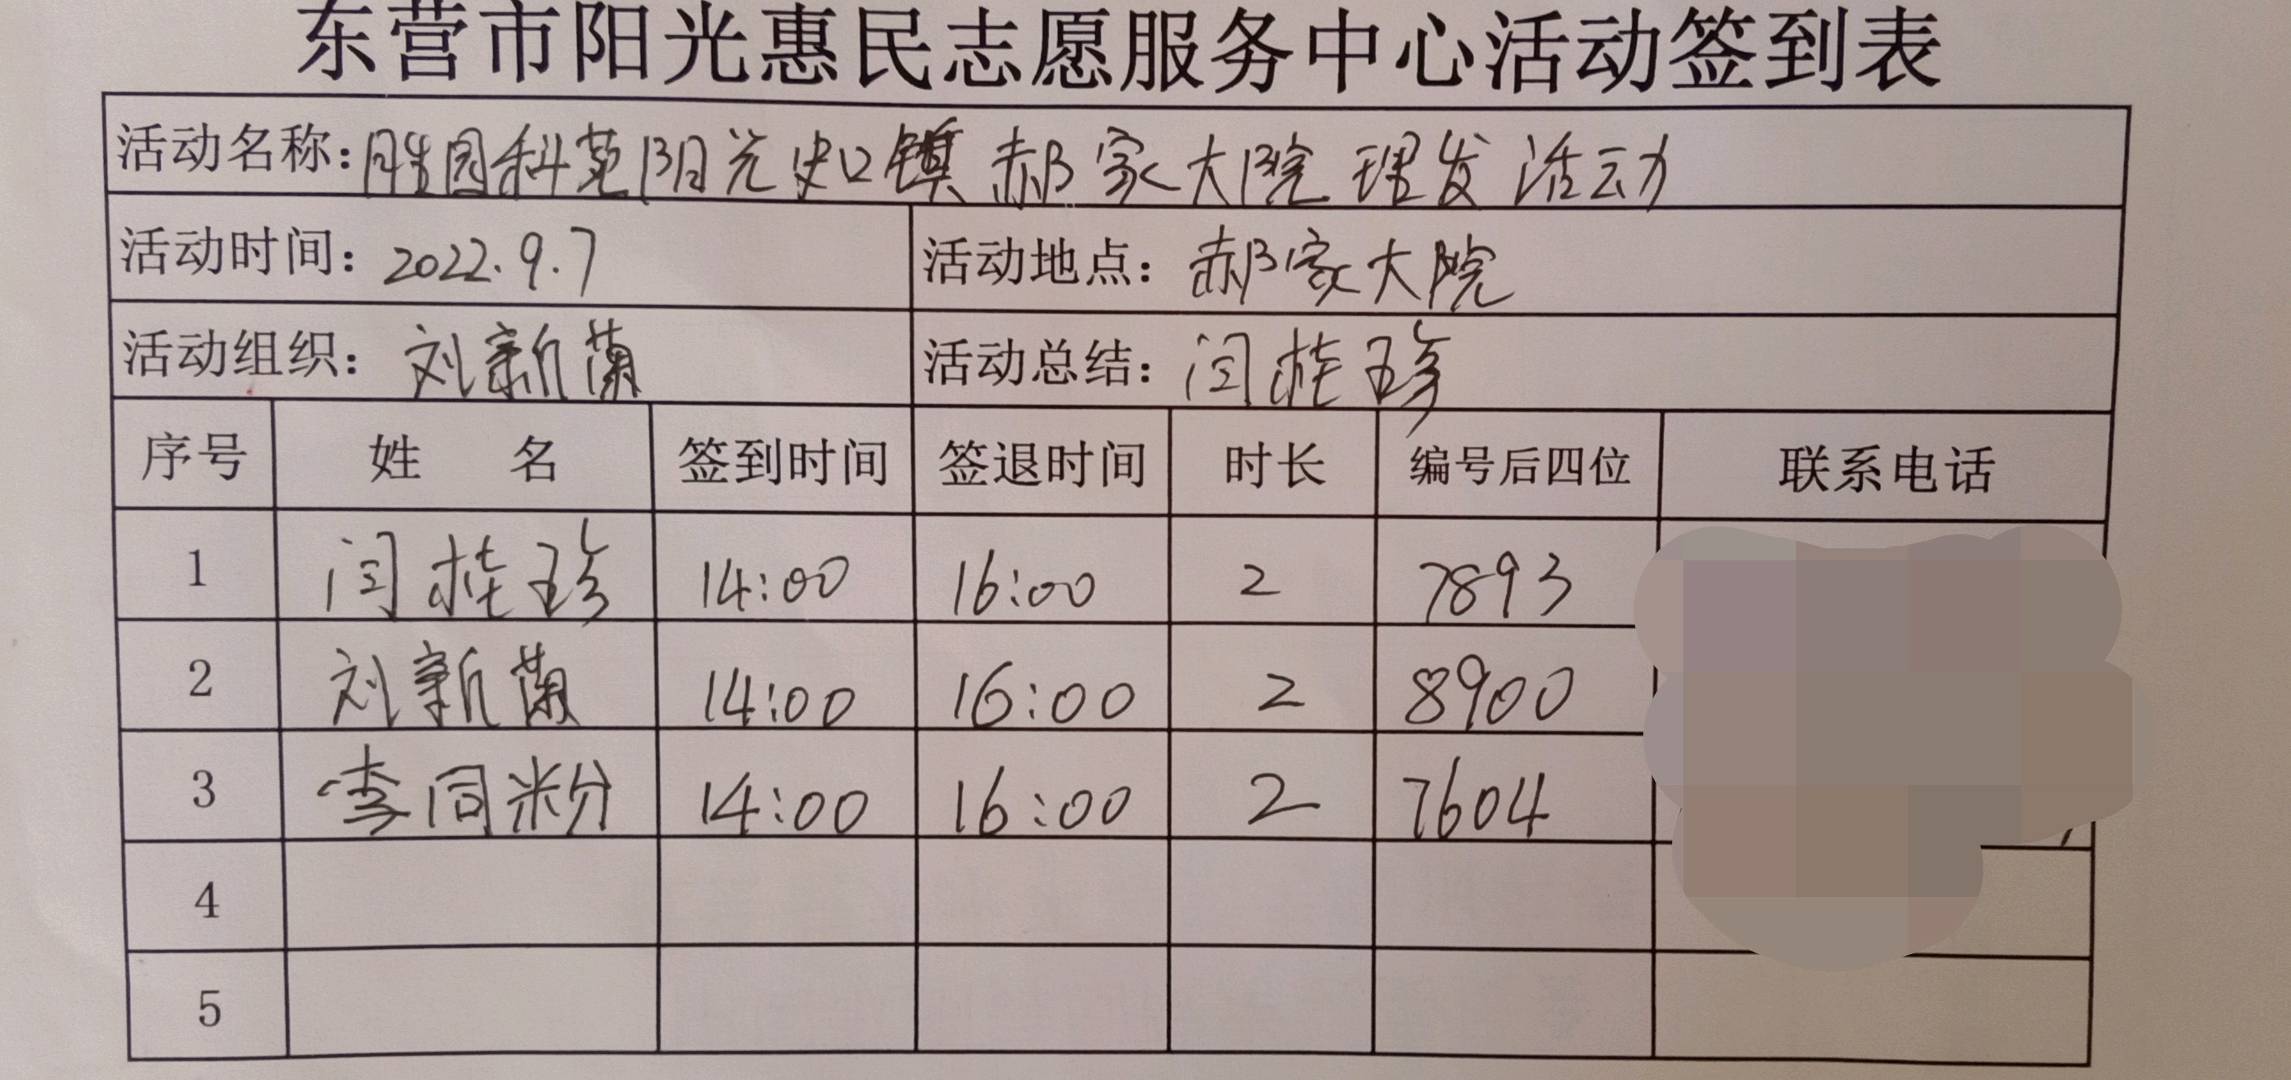 东营市阳光惠民志愿服务中心活动签到表
活动名称：胜园科苑阳光史口镇郝家大院理发活动
活动时间：2022.9.7 活动地点：郝家大院
活动组织：刘新兰 活动总结：闫桂珍
序号 姓名 签到时间 签退时间 时长 编号后四位 联系电话
1 闫桂珍 14:00 16:00 2 7893
2 刘新 14:00 16:00 2 8900
3 李同粉 14:00 16:00 2 7604
4
5